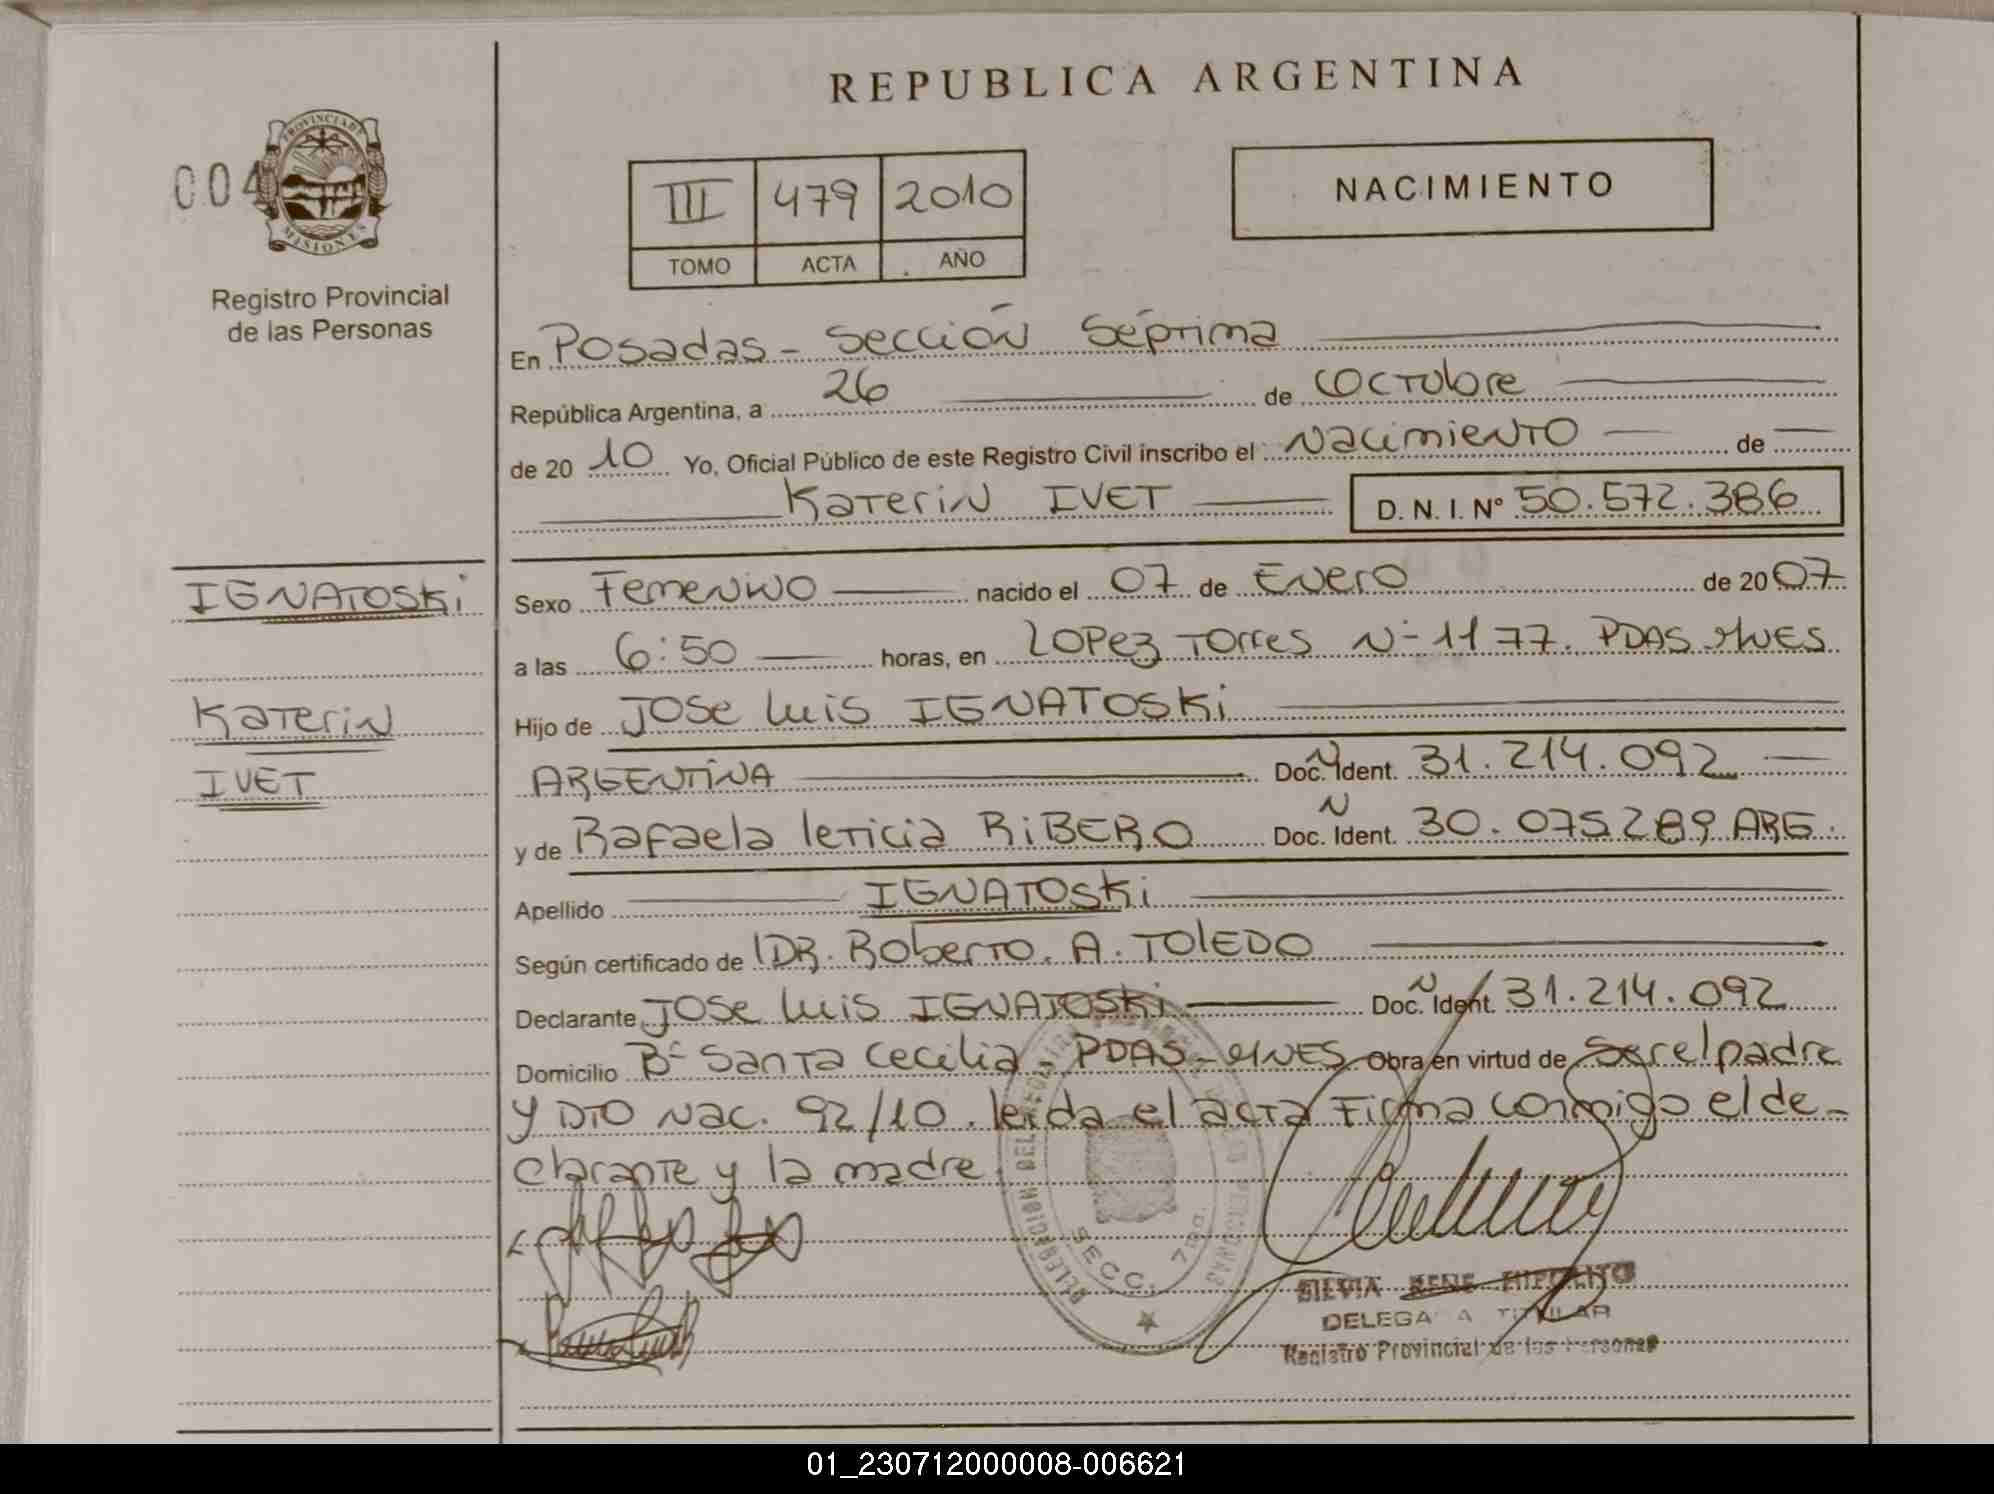 REPUBLICA ARGENTINA
004
PROVINCIA DE
MISIONES
Registro Provincial
de las Personas
III 479 2010
TOMO ACTA AÑO
NACIMIENTO
En Posadas - Sección Séptima
República Argentina, a 26 de Octubre
de 20 10 Yo, Oficial Público de este Registro Civil inscribo el Nacimiento de
Katerin IVET D. N. I. Nº 50.572.386
IGNATOSKi
Katerin
IVET
Sexo Femenino nacido el 07 de Enero de 20 07
a las 6:50 horas, en Lopez Torres N- 1177. PDAS Mnes
Hijo de Jose Luis IGNATOSKi
ARGENTINA Doc. Ident. N 31.214.092
y de Rafaela leticia RiBERO Doc. Ident. N 30.075289 ARG.
Apellido IGNATOSKi
Según certificado de DR. Roberto. A. TOlEDO
Declarante Jose Luis IGNATOSKi Doc. Ident. N 31.214.092
Domicilio Bº Santa Cecilia, PDAS-MNES Obra en virtud de Ser el padre
y DTO Nac. 92/10. leida el acta Firma conmigo el de-
clarante y la madre.
DELEGACION DEL REGISTRO PROVINCIAL DE LAS PERSONAS
SECC. 7ma.
SILVIA RENE HIPOLITO
DELEGADA TITULAR
Registro Provincial de las Personas
01_230712000008-006621